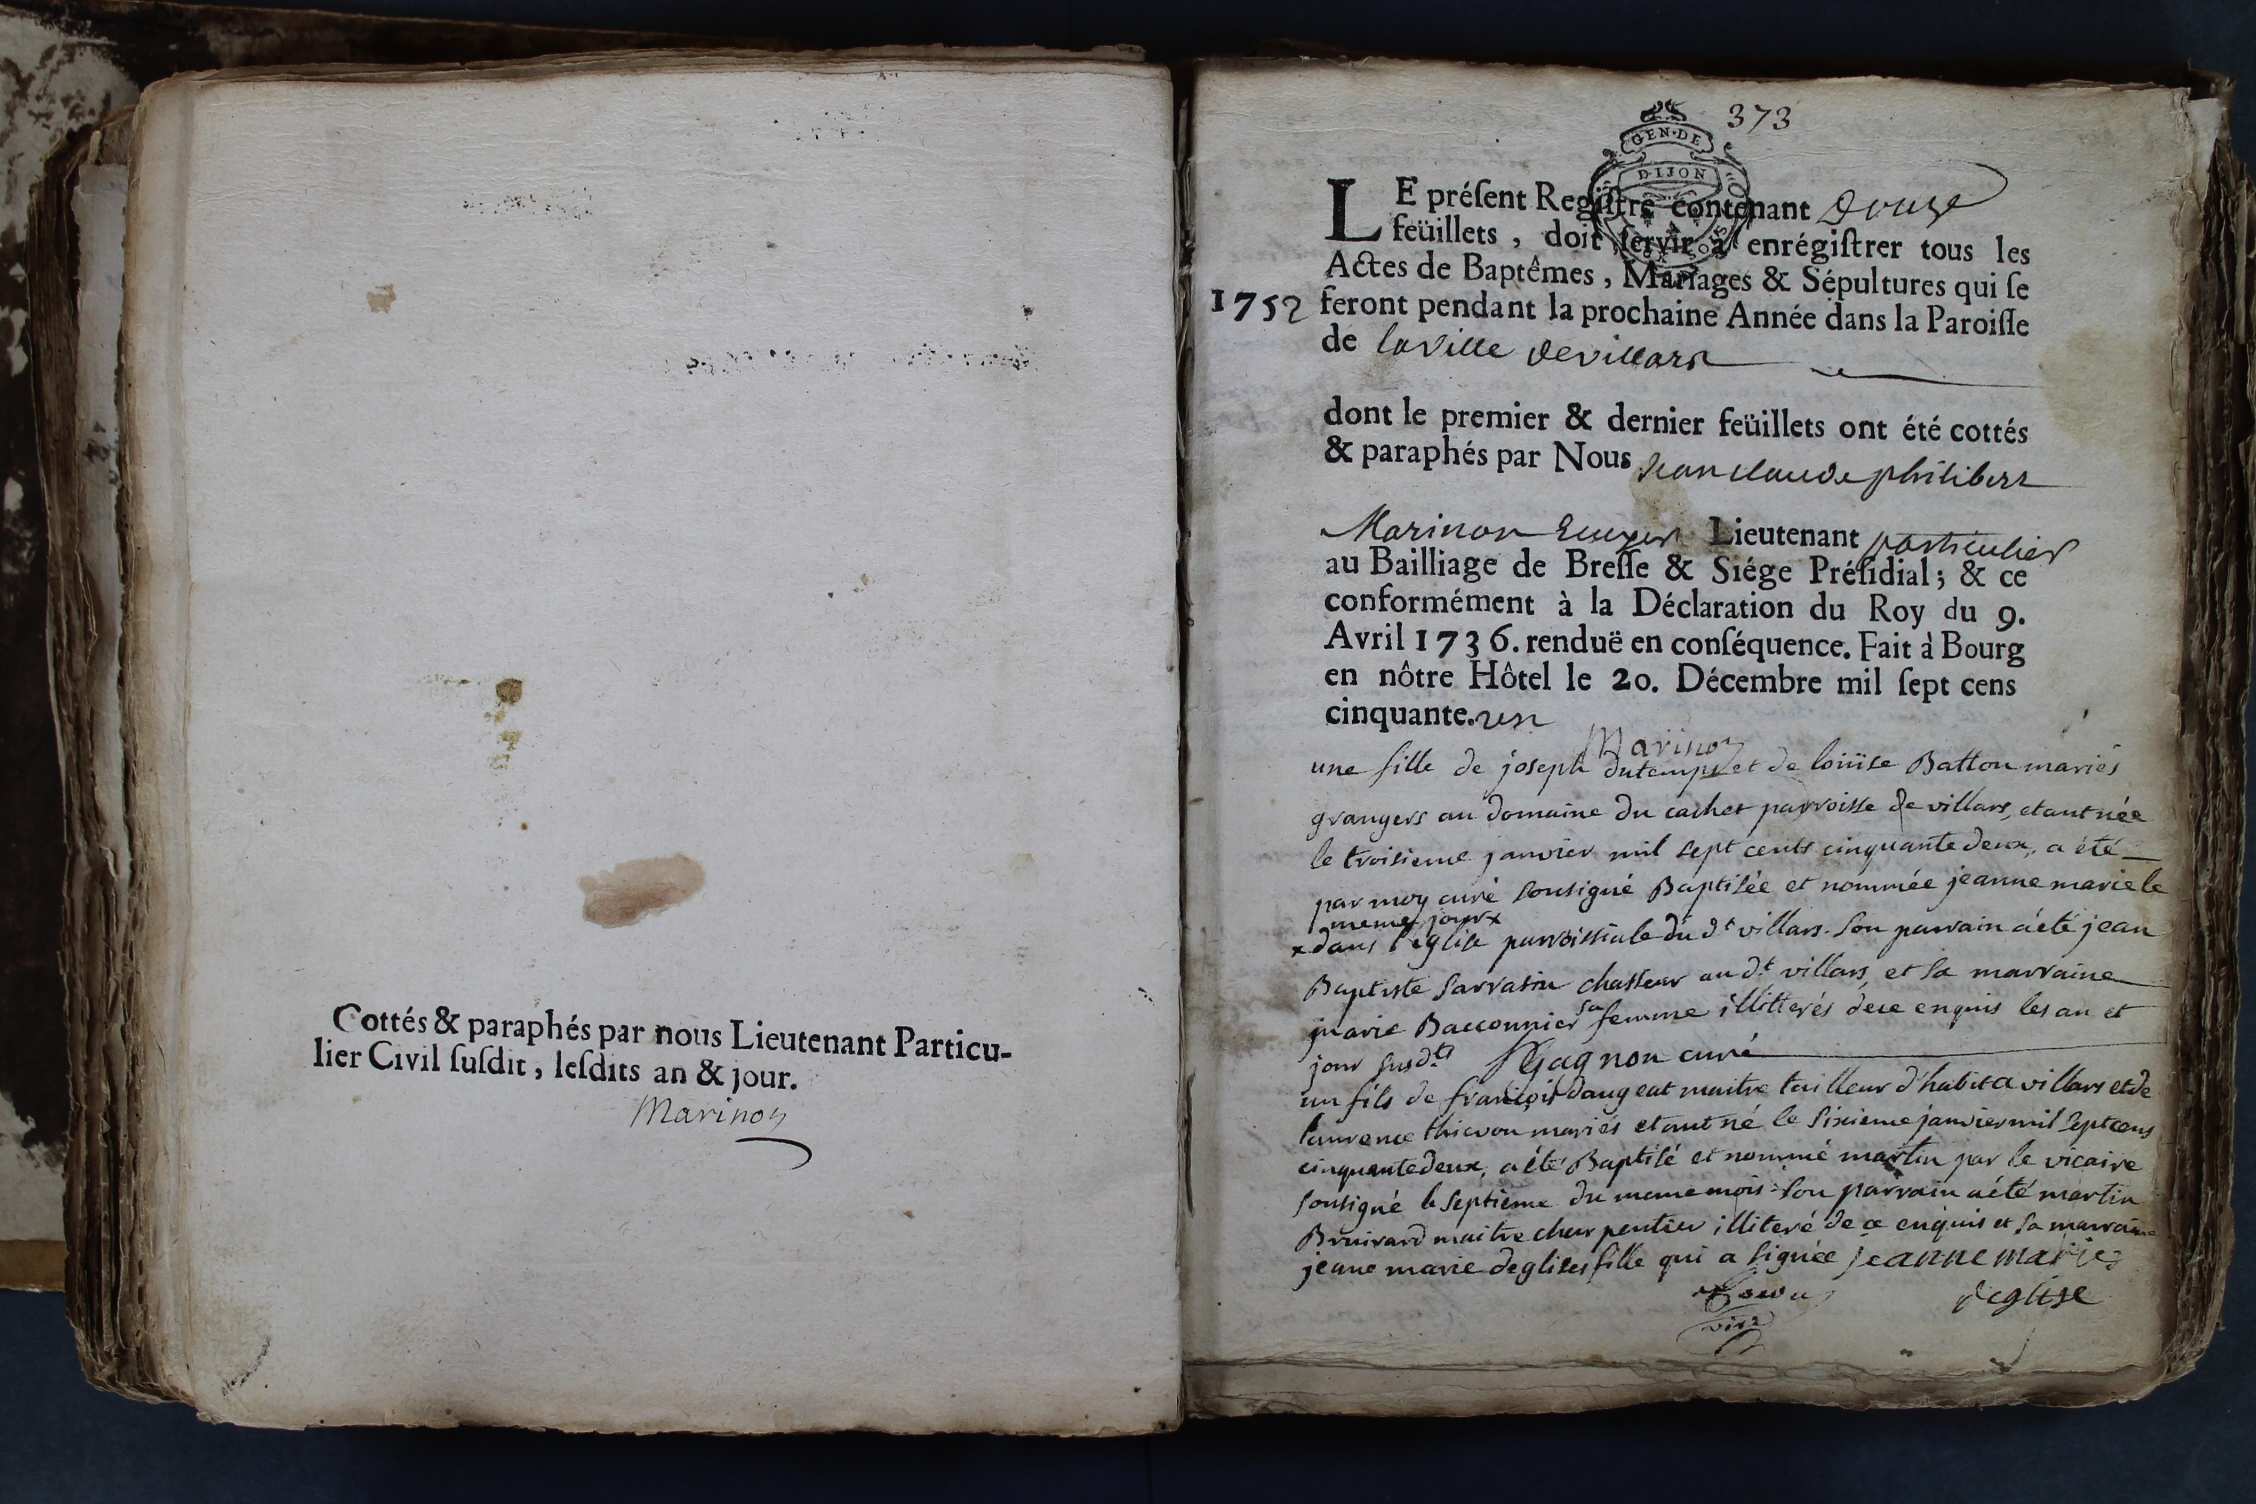 Cottés & paraphés par nous Lieutenant Particu-
lier Civil ſuſdit, leſdits an & jour.
Marinon
373
GEN·DE
DIJON
LE préſent Regiſtre contenant Douze
feüillets, doit ſervir à enrégiſtrer tous les
Actes de Baptêmes, Mariages & Sépultures qui ſe
1752 feront pendant la prochaine Année dans la Paroiſſe
de la Ville de villars
dont le premier & dernier feüillets ont été cottés
& paraphés par Nous Jean Claude philibert
Marinon Ecuyer Lieutenant particulier
au Bailliage de Breſſe & Siége Préſidial; & ce
conformément à la Déclaration du Roy du 9.
Avril 1736. renduë en conſéquence. Fait à Bourg
en nôtre Hôtel le 20. Décembre mil ſept cens
cinquante. un
Marinon
une fille de joseph dutemps et de loüise Batton mariés
grangers au domaine du cachet parroisse de villars, etant née
le troisieme janvier mil sept cents cinquante deux, a été
par moy curé sousigné Baptisée et nommée jeanne marie le
meme jour x
x dans l'eglise parroissiale du dt villars. son parrain a été jean
Baptiste sarrasin chasseur au dt villars, et sa marraine
marie Bacconnier sa femme illitterés de ce enquis les an et
jour susdts Gagnon curé
un fils de françois daugeat maitre tailleur d'habit a villars et de
laurence thievon mariés etant né le sixieme janvier mil sept cens
cinquante deux, a été Baptisé et nommé martin par le vicaire
sousigné le septieme du meme mois son parrain a été martin
Bruirard maitre charpentier illiteré de ce enquis et sa marraine
jeanne marie deglises fille qui a signée jeanne marie
d'eglise
vire